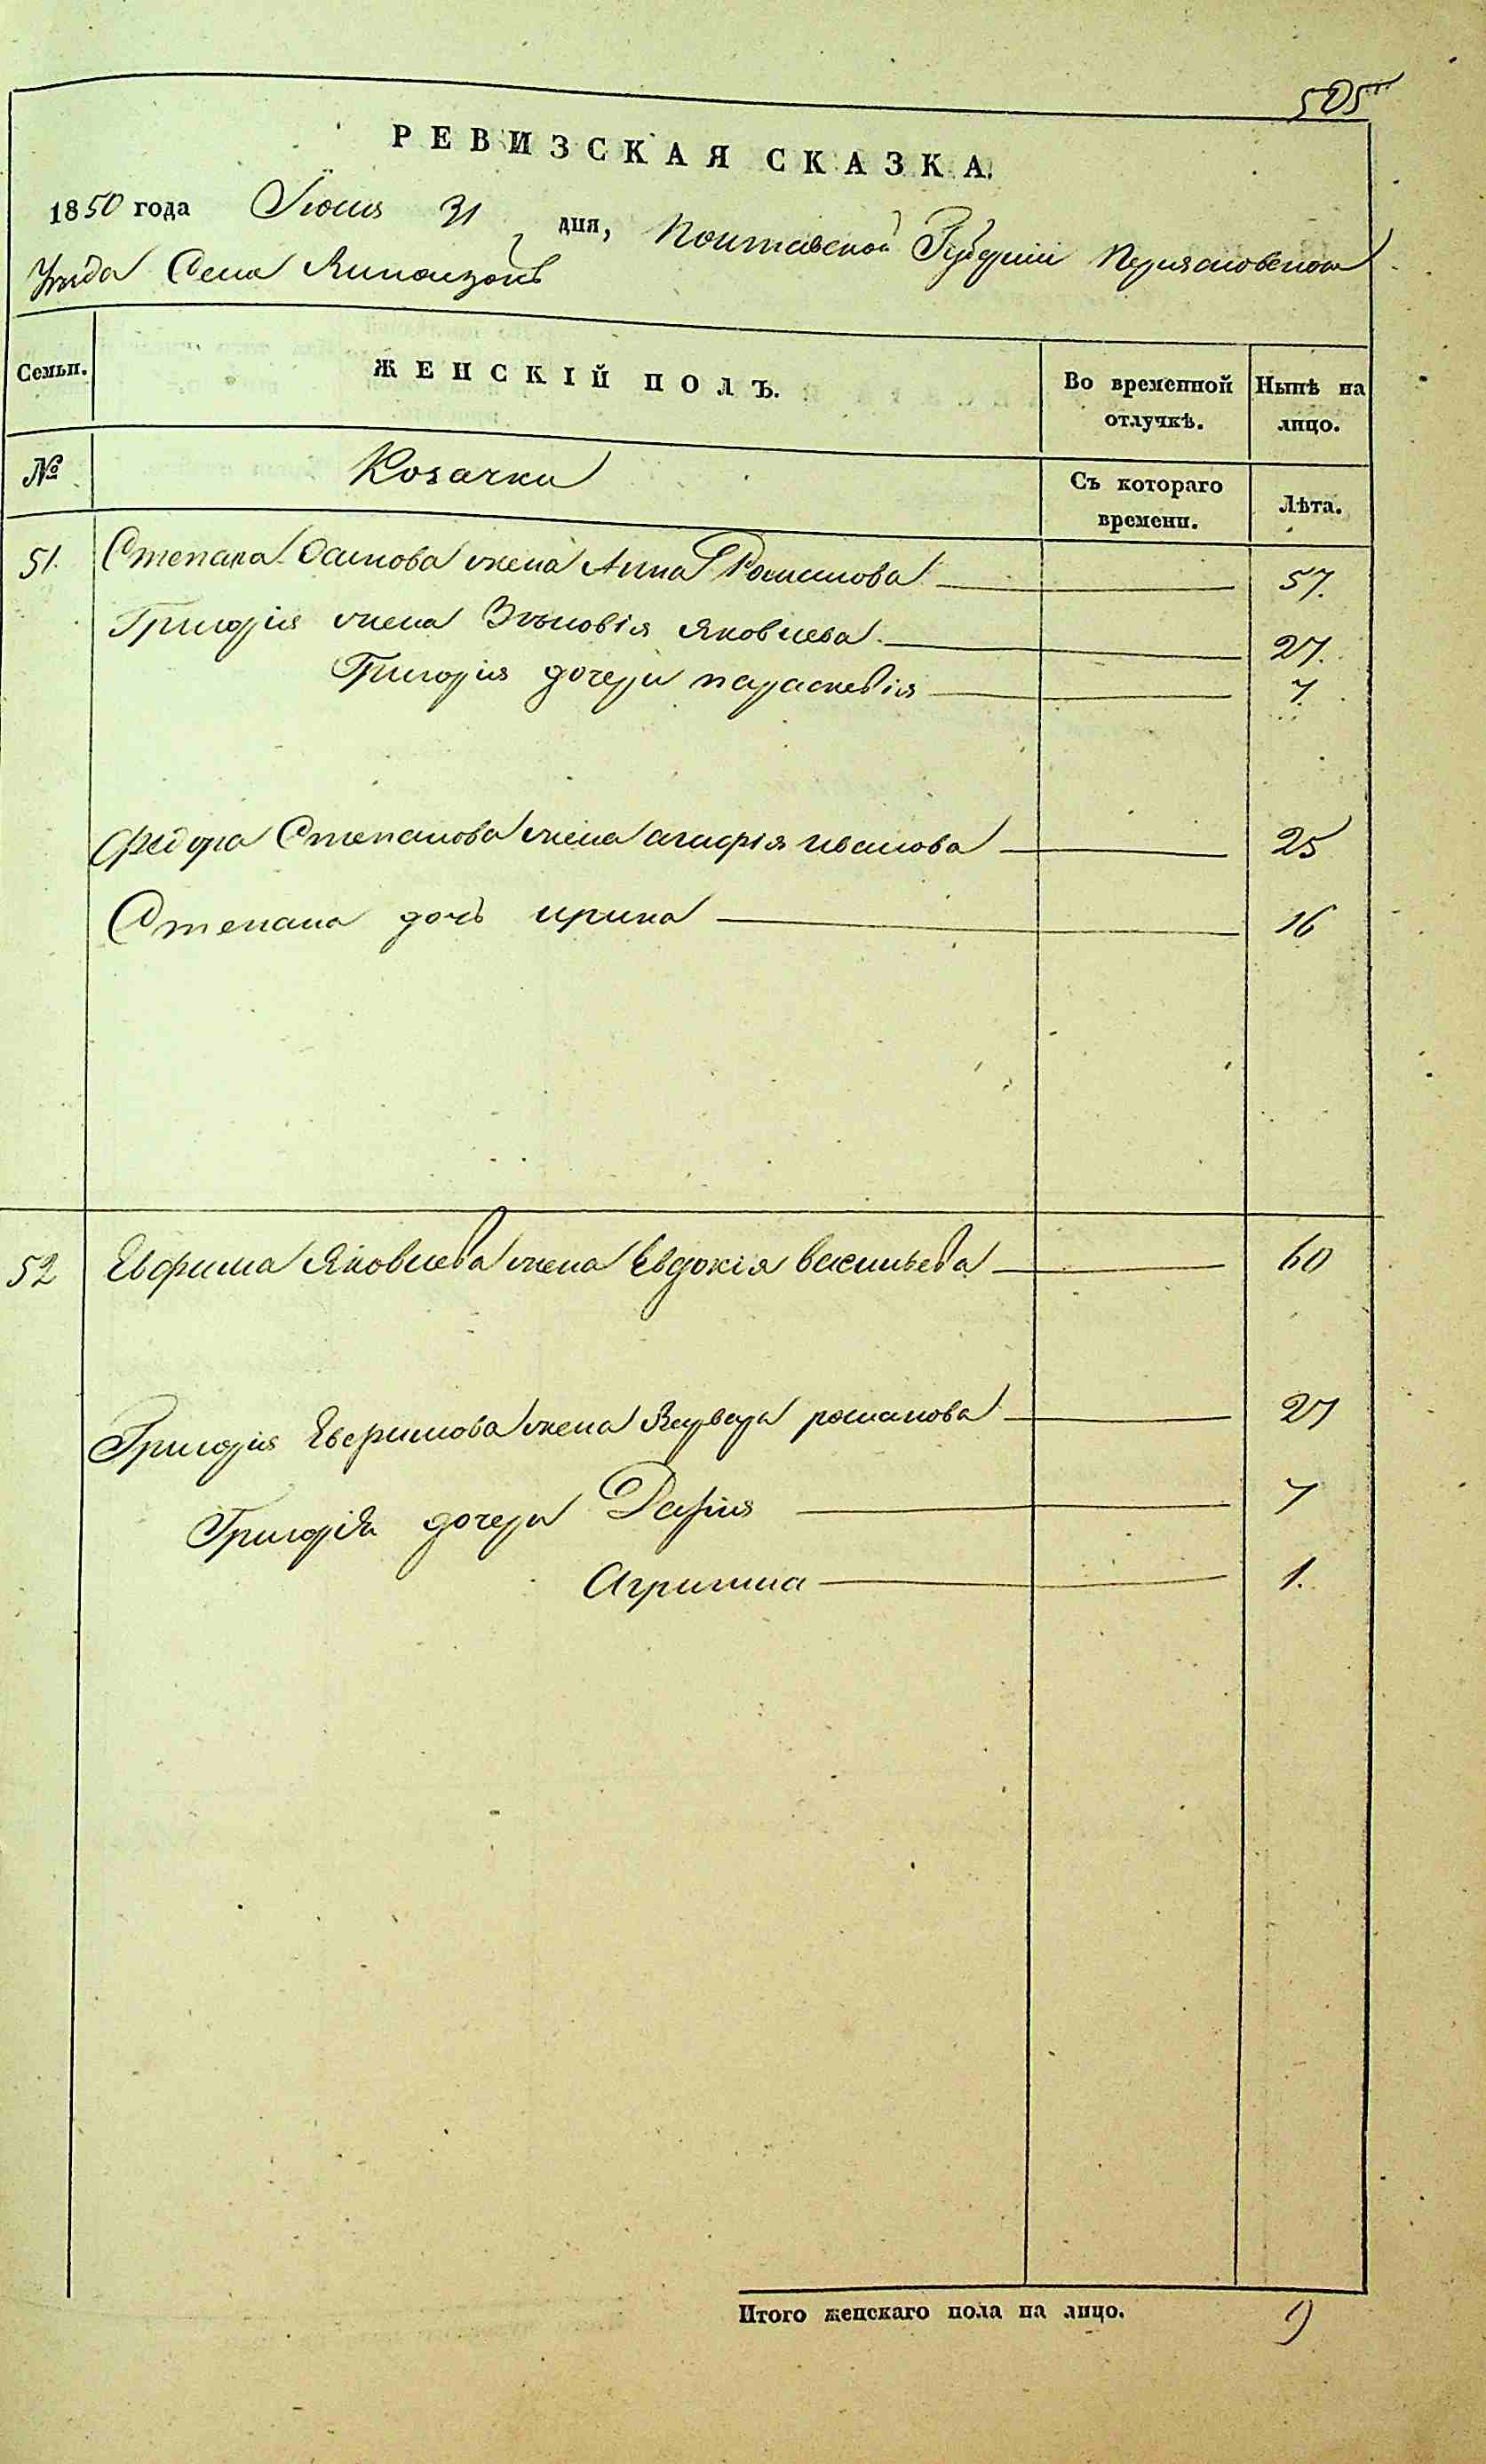 505
РЕВИЗСКАЯ СКАЗКА.
1850 года Іюня 31 дня, Полтавской Губерніи Переяславского
Уезда Села
Семьи. ЖЕНСКІЙ ПОЛЪ. Во временной отлучкѣ. Нынѣ на лицо.
№ Козачки Съ котораго времени. Лѣта.
51. Степана Осипова жена Анна Романова 57.
Григорія жена Зѣновія Яковлева 27.
Григорія дочери параскевія 7.
Федора Степанова жена агафія иванова 25
Степана дочь ирина 16
52 Евфима Яковлева жена Евдокія васильева 60
Григорія Евфимова жена Варвара романова 27
Григорія дочери Дарія 7
Агрипина 1.
Итого женскаго пола на лицо. 9